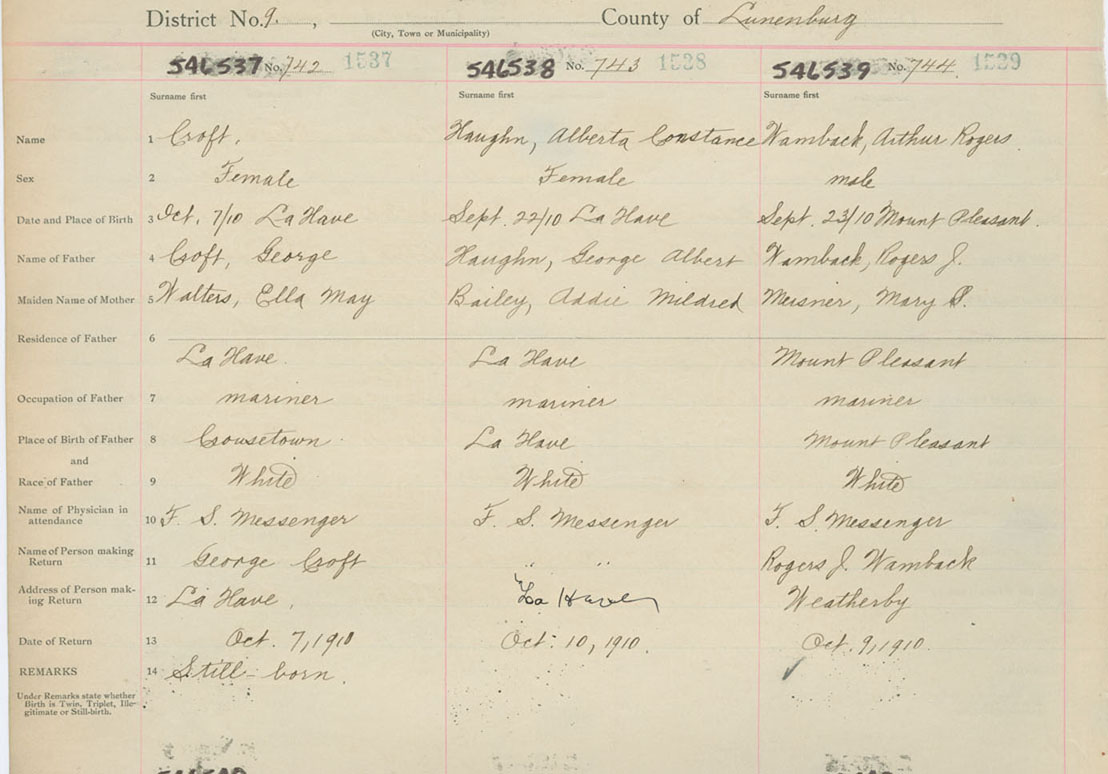 District No. 9. , County of Lunenburg
(City, Town or Municipality)
546537 No. 742 1537 546538 No. 743 1538 546539 No. 744. 1539
Surname first Surname first Surname first
Name 1 Croft, Haughn, Alberta Constance Wamback, Arthur Rogers.
Sex 2 Female Female male
Date and Place of Birth 3 Oct. 7/10 La Have Sept. 22/10 La Have Sept. 23/10 Mount Pleasant.
Name of Father 4 Croft, George Haughn, George Albert Wamback, Rogers J.
Maiden Name of Mother 5 Walters, Ella May Bailey, Addie Mildred Meisner, Mary S.
Residence of Father 6
La Have. La Have Mount Pleasant
Occupation of Father 7 mariner mariner mariner
Place of Birth of Father 8 Crousetown. La Have Mount Pleasant
and
Race of Father 9 White White White
Name of Physician in
attendance 10 F. S. Messenger F. S. Messenger F. S. Messenger
Name of Person making
Return 11 George Croft " " Rogers J. Wamback
Address of Person mak-
ing Return 12 La Have, La Have Weatherby
Date of Return 13 Oct. 7, 1910 Oct. 10, 1910. Oct. 9, 1910.
REMARKS 14 Still-born.
Under Remarks state whether
Birth is Twin, Triplet, Ille-
gitimate or Still-birth.